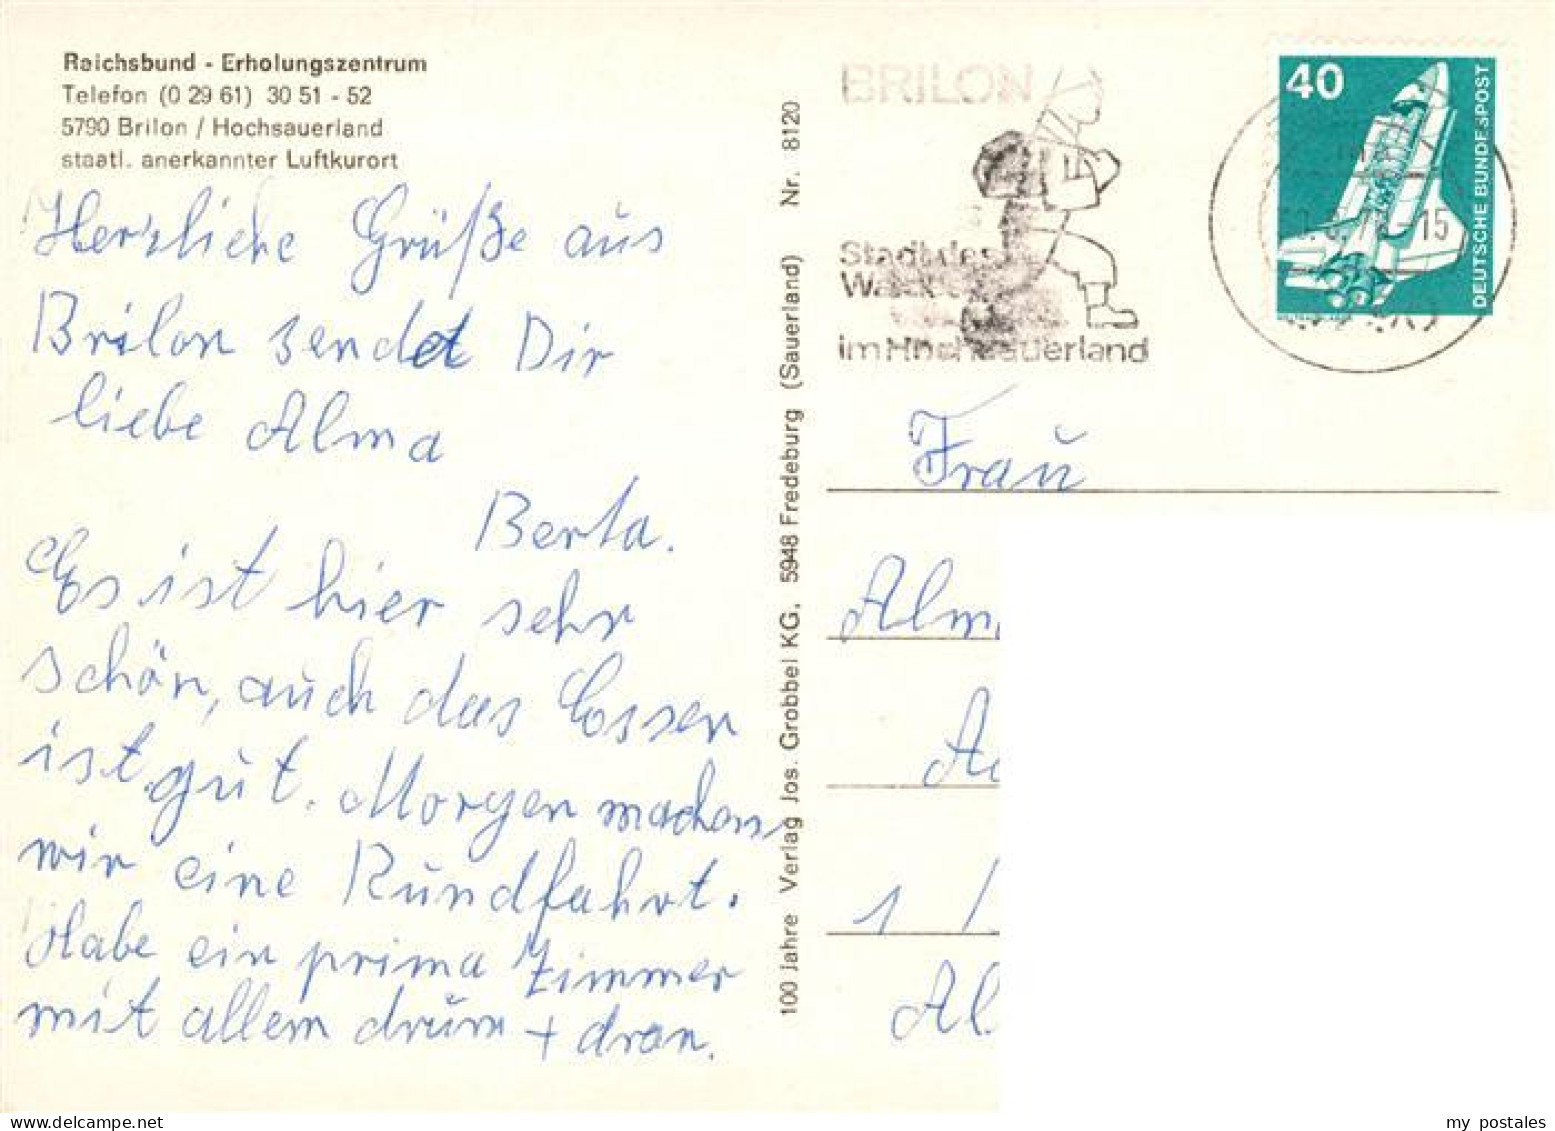 Reichsbund - Erholungszentrum
Telefon (0 29 61) 30 51 - 52
5790 Brilon / Hochsauerland
staatl. anerkannter Luftkurort
Herzliche Grüße aus
Brilon sendet Dir
liebe Alma
Berta.
Es ist hier sehr
schön, auch das Essen
ist gut. Morgen machen
wir eine Rundfahrt.
Habe ein prima Zimmer
mit allem drum + dran.
100 Jahre Verlag Jos. Grobbel KG, 5948 Fredeburg (Sauerland) Nr. 8120
BRILON
Stadt des
im Hochsauerland
40
DEUTSCHE BUNDESPOST
Frau
Alm
1
Al
my postales